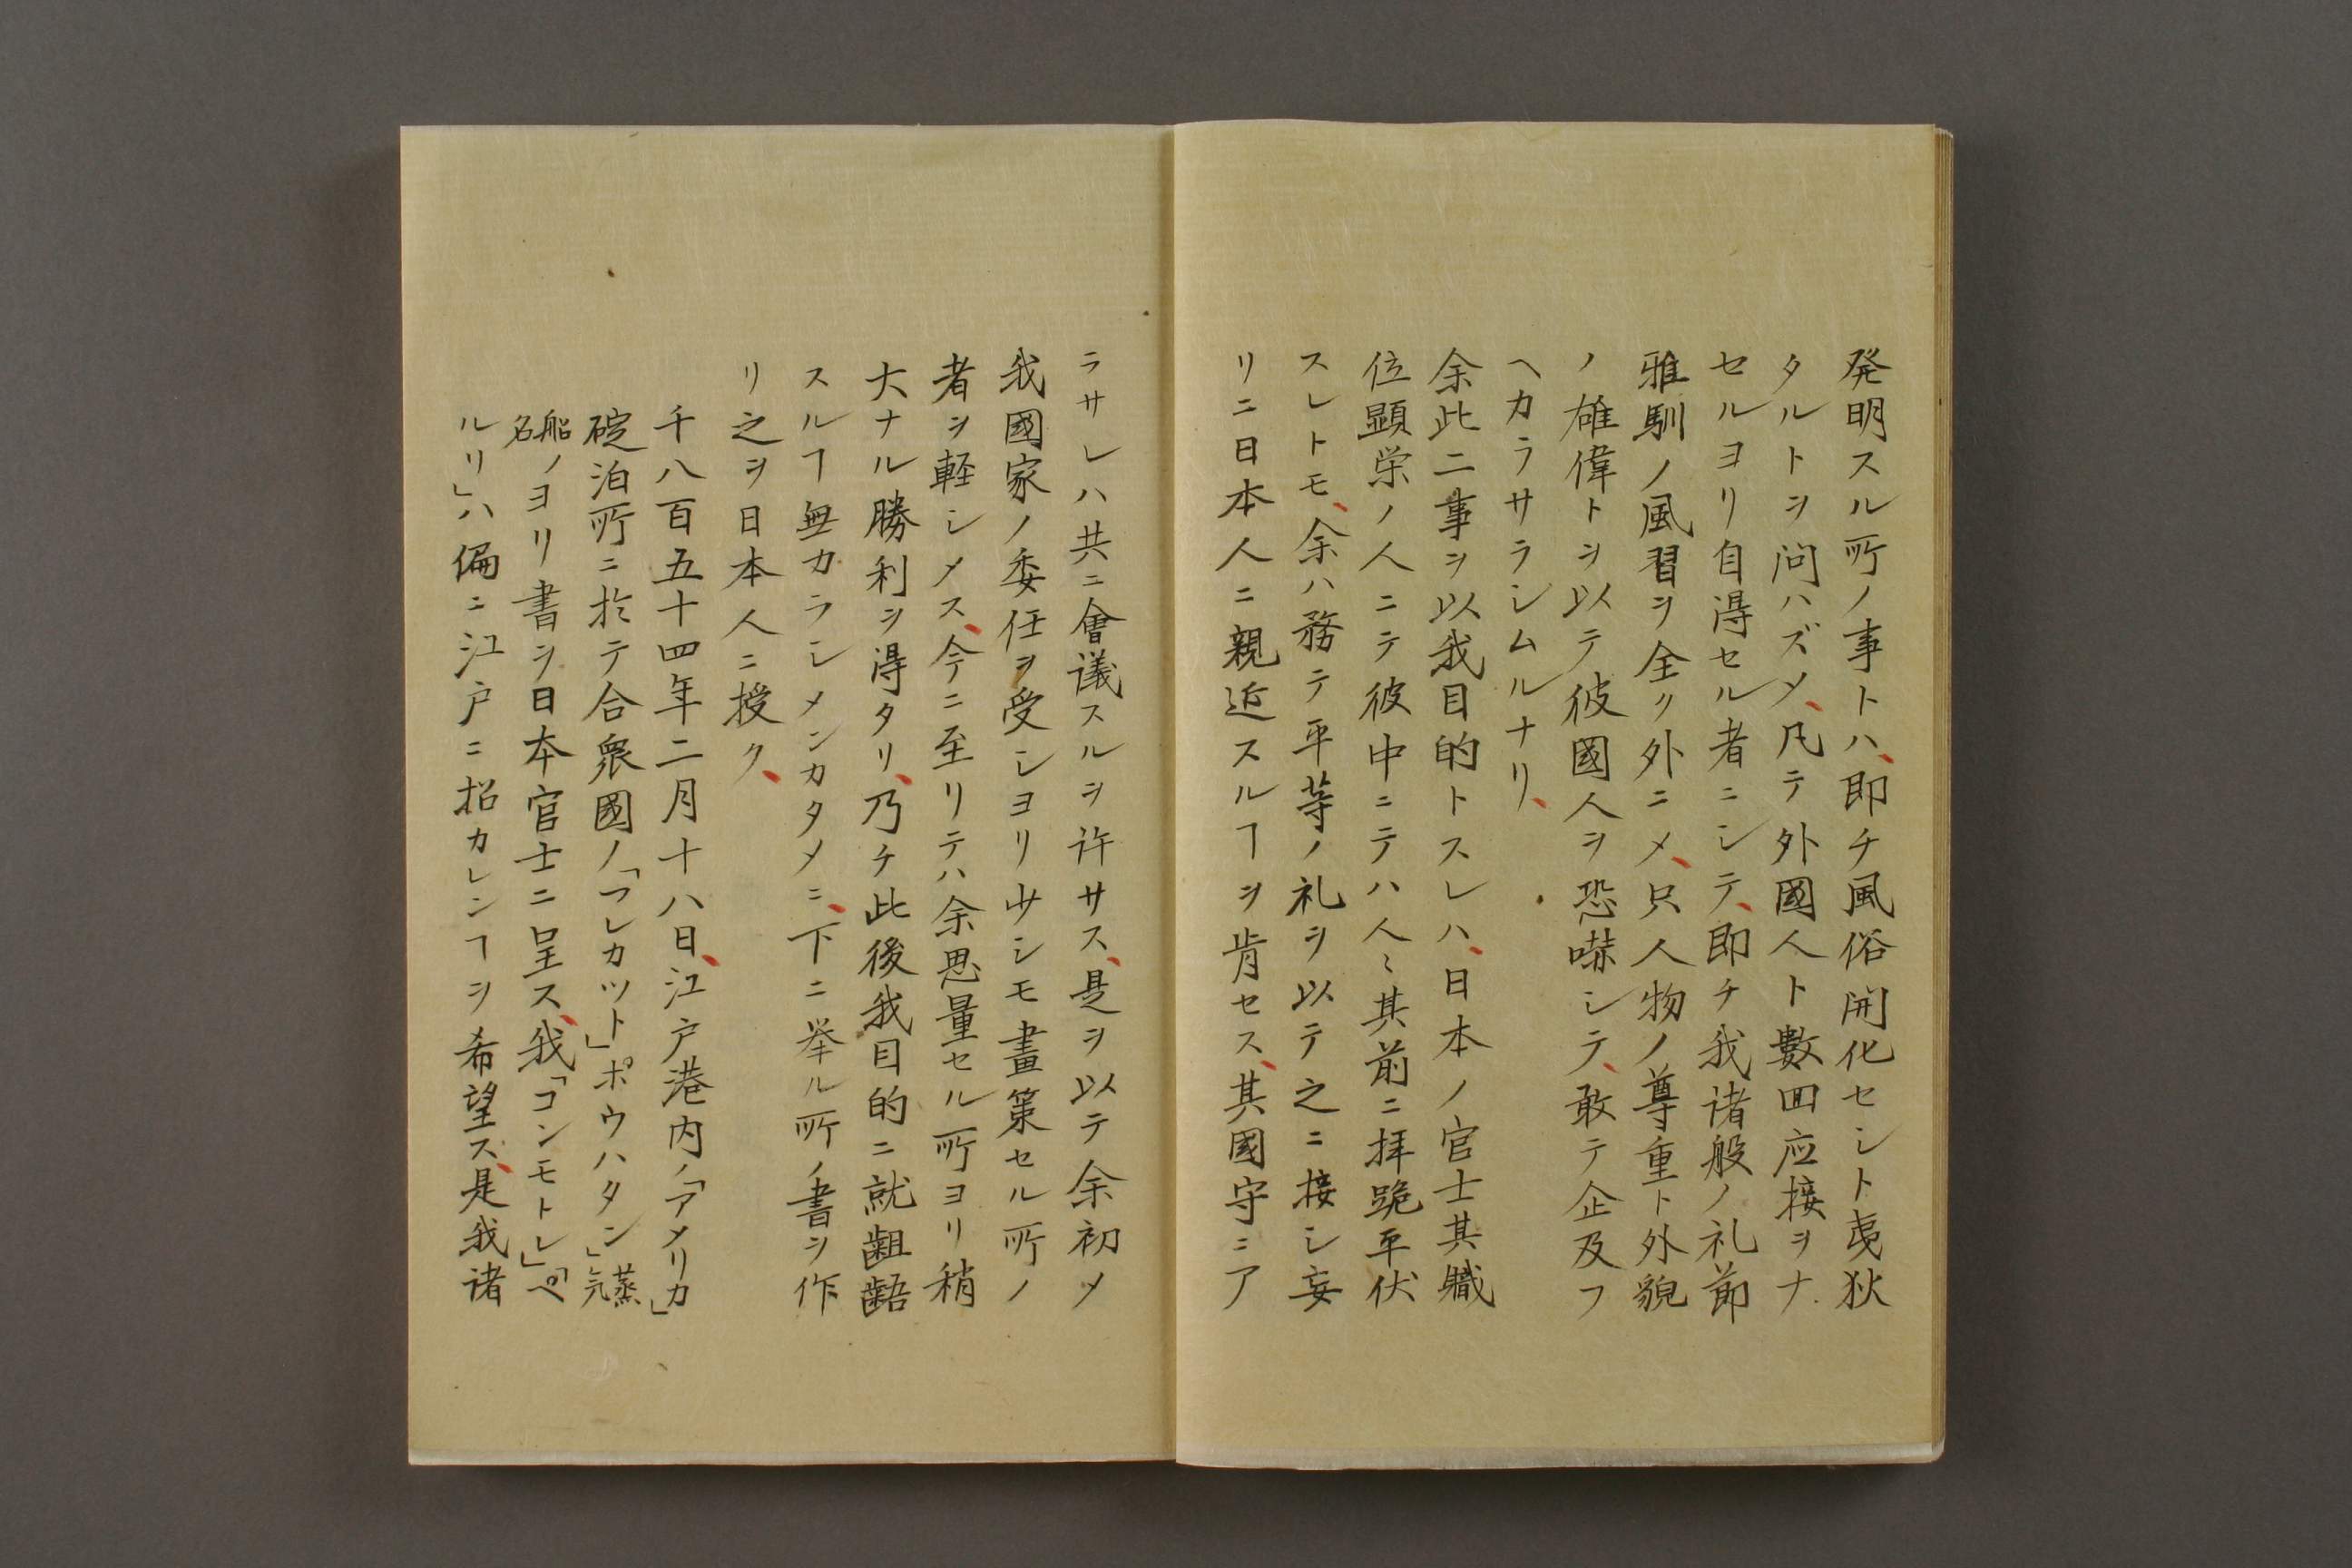 発明スル所ノ事トハ、即チ風俗開化セシト夷狄
タルトヲ問ハズメ、凡テ外國人ト數回应接ヲナ
セルヨリ自得セル者ニシテ、即チ我诸般ノ礼節
雅馴ノ風習ヲ全ク外ニメ、只人物ノ尊重ト外貌
ノ雄偉トヲ以テ彼國人ヲ恐㗲シテ、敢テ企及フ
ヘカラサラシムルナリ、
余此二事ヲ以我目的トスレハ、日本ノ官士其職
位顕栄ノ人ニテ彼中ニテハ人〻其前ニ拝跪平伏
スレトモ、余ハ務テ平等ノ礼ヲ以テ之ニ接シ妄
リニ日本人ニ親近スルヿヲ肯セス、其國守ニア
ラサレハ共ニ會議スルヲ许サス、是ヲ以テ余初メ
我國家ノ委任ヲ受シヨリ少シモ畫策セル所ノ
者ヲ軽シメス、今ニ至リテハ余思量セル所ヨリ稍
大ナル勝利ヲ得タリ、乃チ此後我目的ニ就齟齬
スルヿ無カラシメンカタメニ、下ニ挙ル所ノ書ヲ作
リ之ヲ日本人ニ授ク、
千八百五十四年二月十八日、江戸港内ノ「アメリカ」
碇泊所ニ於テ合衆國ノ「フレカツト」ポウハタン」蒸気
船名ノヨリ書ヲ日本官士ニ呈ス、我「コンモトレ」「ペ
ルリ」ハ偏ニ江戸ニ招カレンヿヲ希望ス、是我诸